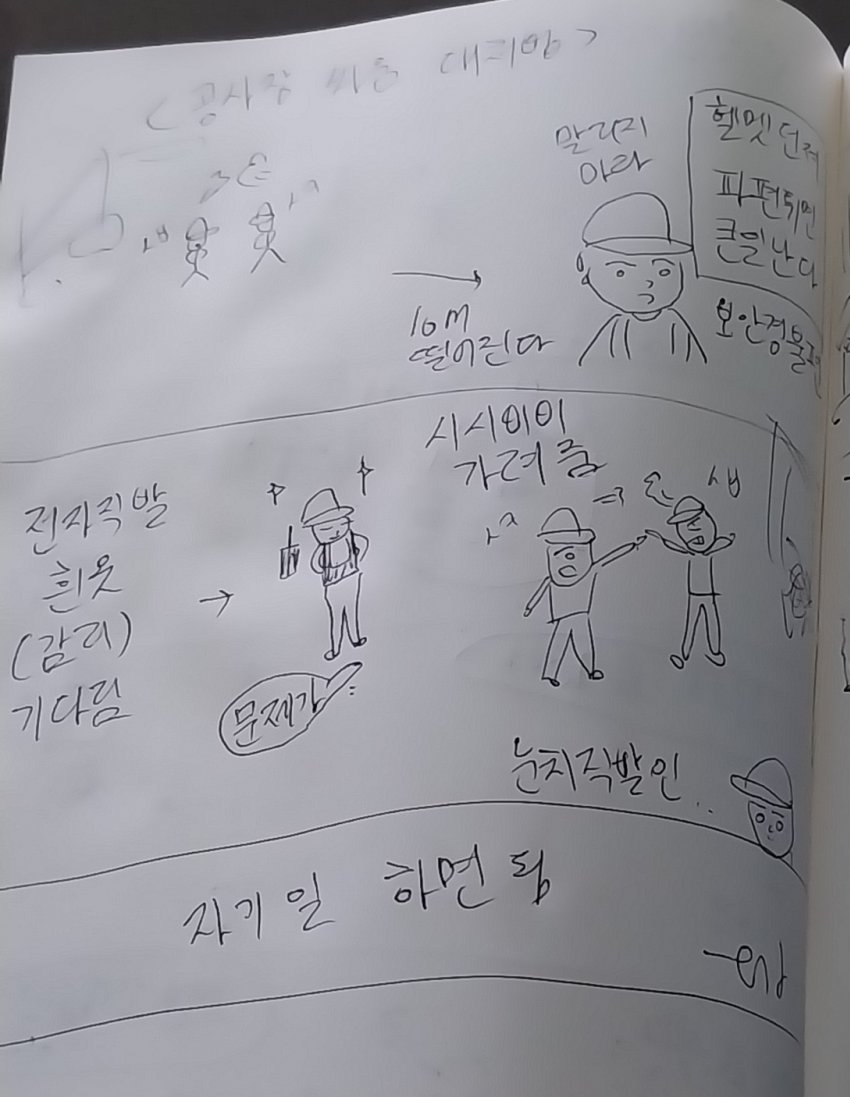 <공사장 싸움 대처방>
말리지
마라
헬멧 던져
파편튀면
큰일난다
보안경 불편
10M
떨어진다
시시이이
가려줌
전자직발
흰옷
(감리)
기다림
→
문제가
눈치직발인..
자기일 하면됨
-끝